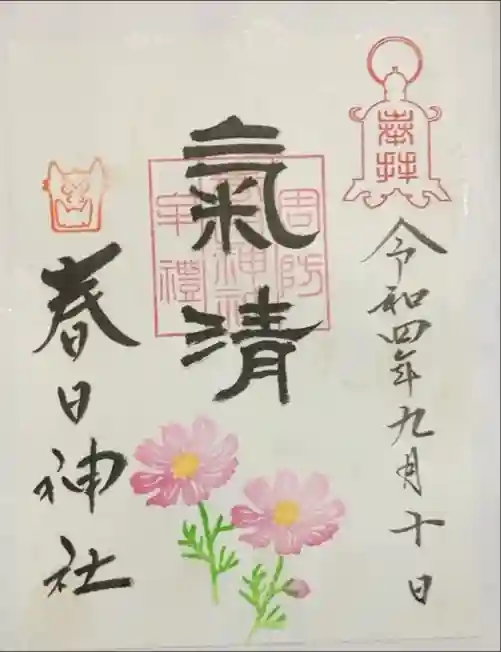 奉拝
令和四年九月十日
氣清
周防
神社
牟禮
春日神社